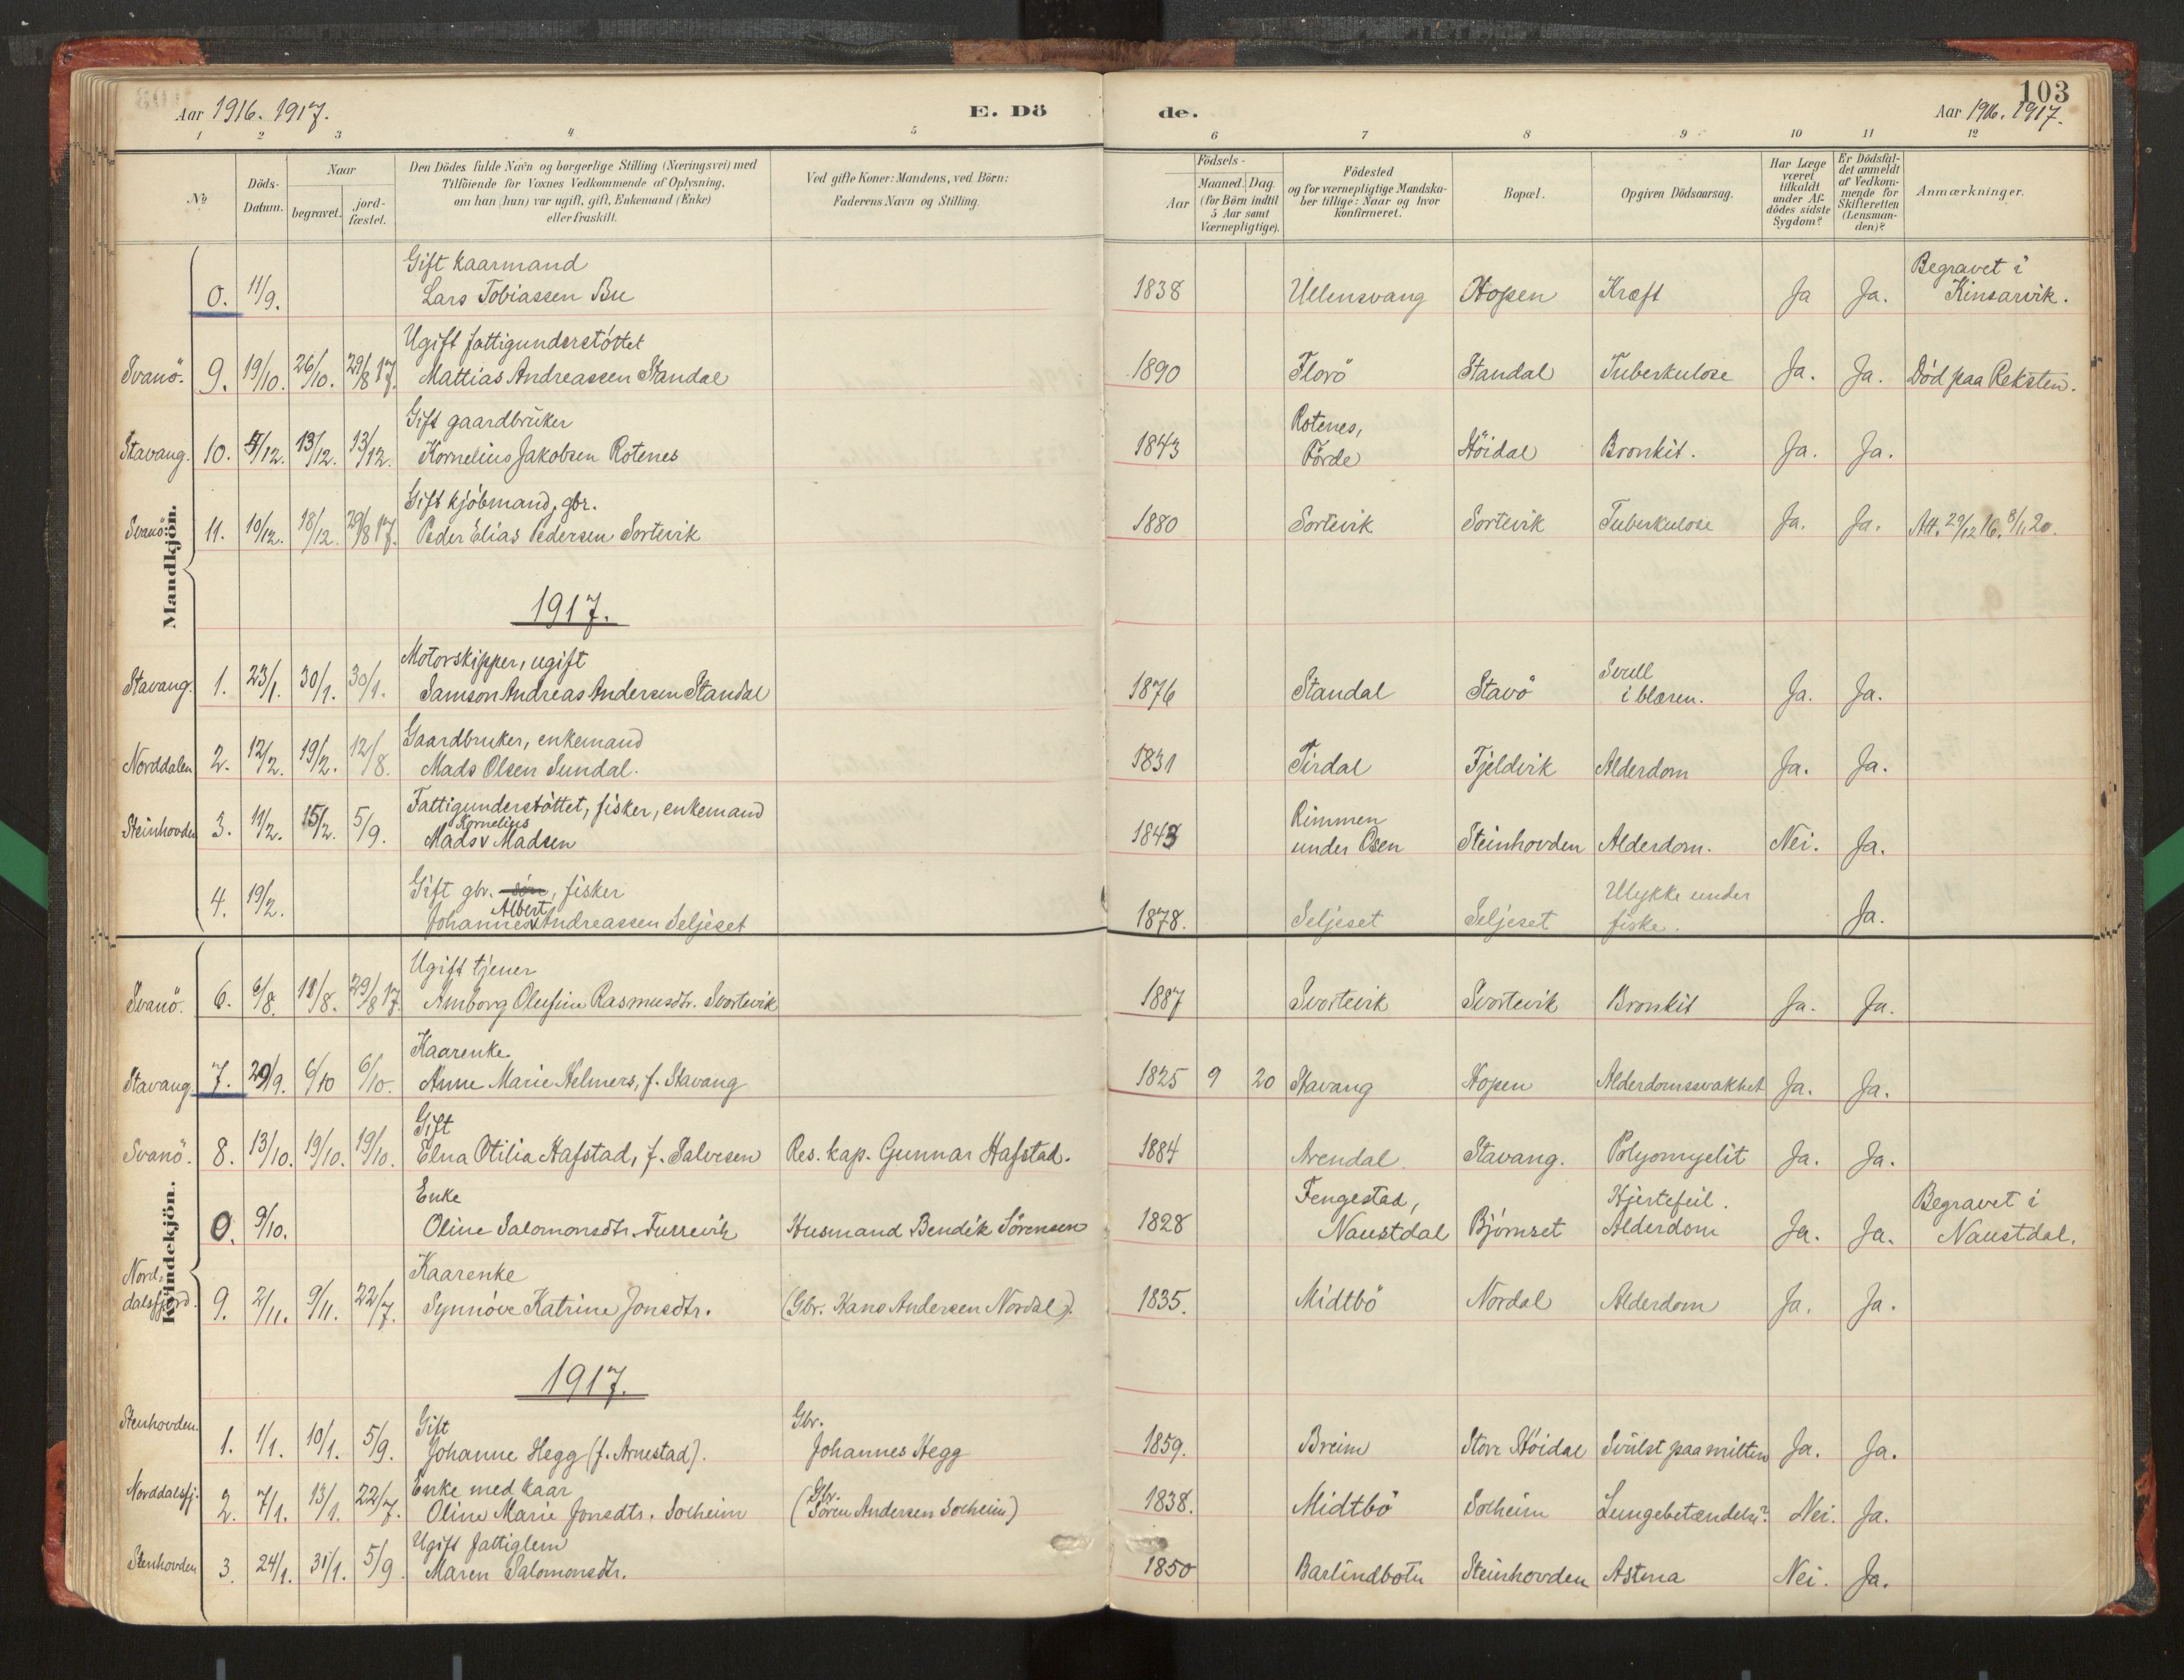 103
Aar 1916. 1917.
E. Dö
de.
Aar 1916. 1917.
1 2 3 4 5 6 7 8 9 10 11 12
No
Döds-
Datum.
Naar
begravet.
jord-
fæstet.
Den Dödes fulde Navn og borgerlige Stilling (Næringsvei) med
Tilföiende for Voxnes Vedkommende af Oplysning,
om han (hun) var ugift, gift, Enkemand (Enke)
eller fraskilt.
Ved gifte Koner: Mandens, ved Börn:
Faderens Navn og Stilling.
Födsels-
Aar
Maaned. Dag.
(for Börn indtil
5 Aar samt
Værnepligtige).
Födested
og for værnepligtige Mandska-
ber tillige: Naar og hvor
konfirmeret.
Bopæl.
Opgiven Dödsaarsag.
Har Læge
været
tilkaldt
under Af-
dödes sidste
Sygdom?
Er Dödsfal-
det anmeldt
af Vedkom-
mende for
Skifteretten
(Lensman-
den)?
Anmærkninger.
Mandkjön.
Gift kaarmand Begravet i
0. 11/9. Lars Tobiassen Bu 1838 Ullensvang Hopen Kræft Ja Ja. Kinsarvik.
Ugift fattigunderstöttet
Svanö. 9. 19/10. 26/10. 29/8 17. Mattias Andreassen Standal 1890 Florö Standal Tuberkulose Ja. Ja. Död paa Reksten.
Gift gaardbruker Rotenes,
Stavang. 10. /12. 13/12. 13/12. Kornelius Jakobsen Rotenes 1843 Förde Höidal Bronkit. Ja. Ja.
Gift kjöbmand, gbr.
Svanö. 11. 10/12. 18/12. 29/8 17. Peder Elias Pedersen Sortevik 1880 Sortevik Sortevik Tuberkulose Ja. Ja. Att. 29/12 16. 8/1 20.
1917.
Motorskipper, ugift Svull
Stavang. 1. 23/1. 30/1. 30/1. Samson Andreas Andersen Standal 1876 Standal Stavö i blæren. Ja. Ja.
Gaardbruker, enkemand
Norddalen 2. 12/2. 19/2. 12/8. Mads Olsen Sundal. 1831 Tirdal Fjeldvik Alderdom Ja. Ja.
Fattigunderstöttet, fisker, enkemand Rimmen
Kornelius
Steinhovden 3. 11/2. 15/2. 5/9. Mads Madsen 1843 under Osen Steinhovden Alderdom. Nei. Ja.
Gift gbr. sön, fisker Ulykke under
Albert
4. 19/2. Johannes Andreassen Seljeset 1878. Seljeset Seljeset fiske. Ja.
Kvindekjön.
Ugift tjener
Svanö. 6. 6/8. 18/8. 29/8 17. Amborg Olufine Rasmusdtr. Svortevik 1887 Svortevik Svortevik Bronkit Ja. Ja.
Kaarenke
Stavang. 7. 29/9. 6/10 6/10. Anne Marie Helmers, f. Stavang 1825 9 20 Stavang Hopen Alderdomssvakhet Ja. Ja.
Gift
Svanö. 8. 13/10. 19/10. 19/10. Elna Otilia Hafstad, f. Salvesen Res. kap. Gunnar Hafstad. 1884 Arendal. Stavang. Polyomyelit Ja. Ja.
Enke Fengestad, Hjertefeil. Begravet i
0. 9/10. Oline Salomonsdtr. Furrevik Husmand Bendik Sörensen 1828 Naustdal Björnset Alderdom Ja. Ja. Naustdal.
Kaarenke
Nord-
dalsfjord. 9. 2/11. 9/11. 22/7. Synnöve Katrine Jonsdtr. (Gbr. Hans Andersen Nordal). 1835. Midtbö Nordal Alderdom Ja. Ja.
1917.
Stenhovden. Gift Gbr.
1. 1/1. 10/1. 5/9. Johanne Hegg (f. Arnestad). Johannes Hegg 1859. Breim Store Höidal Svulst paa milten Ja. Ja.
Norddalsfj. Enke med kaar Gbr.
2. 7/1. 13/1. 22/7. Oline Marie Jonsdtr. Solheim (Sören Andersen Solheim) 1838. Midtbö Solheim Lungebetændelse? Nei. Ja.
Ugift fattiglem
Stenhovden 3. 24/1. 31/1. 5/9. Maren Salomonsdtr. 1850 Barlindbotn Steinhovden Astma Nei. Ja.